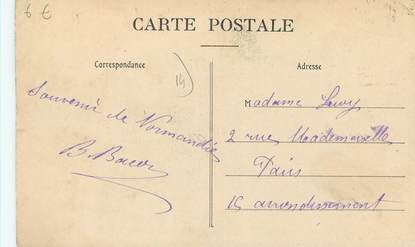 6 €
CARTE POSTALE
Correspondance
Adresse
14
Souvenir de Normandie
B.
Madame Levy
2 rue Mademoiselle
Paris
15 arrondissement